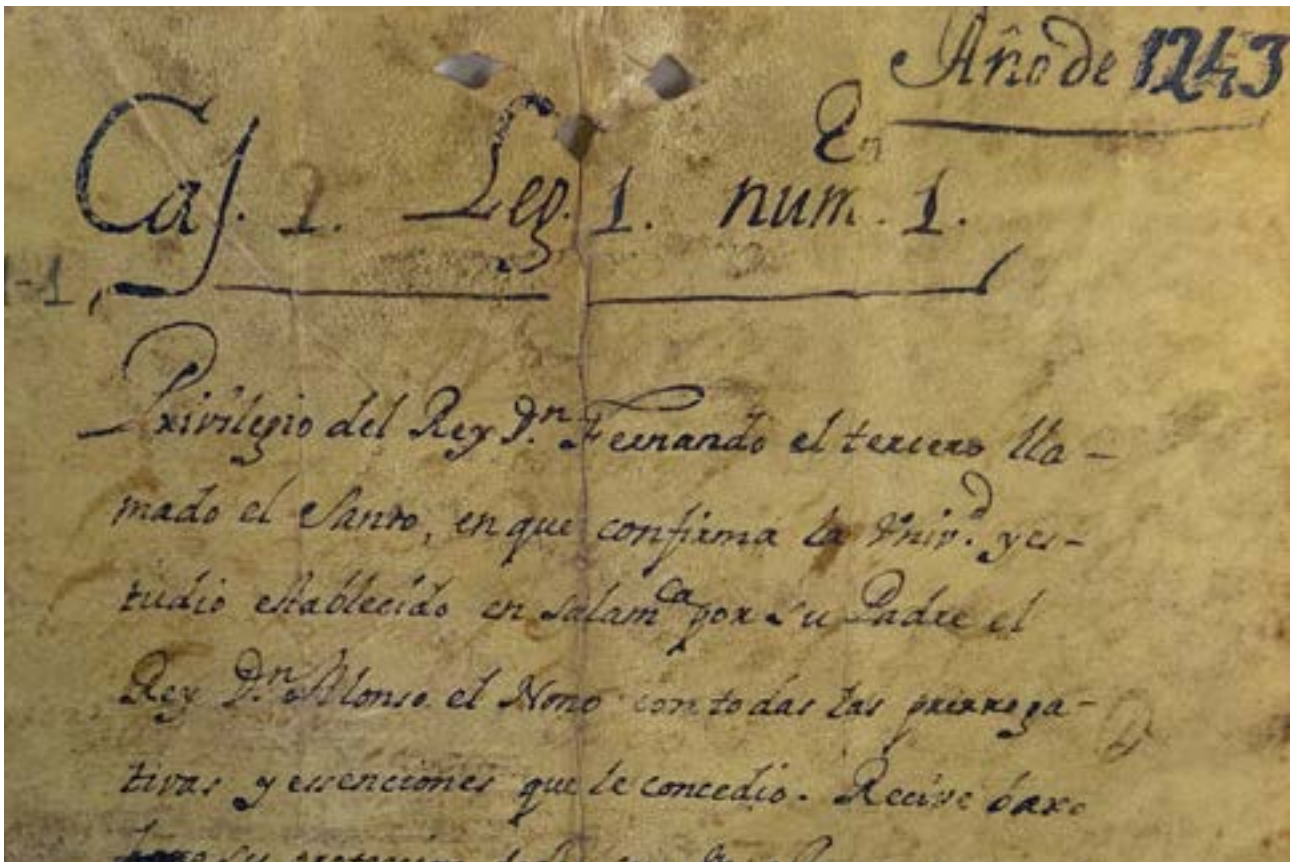 Año de 1243
En
Caj. 1. Leg. 1. num. 1.
-1
Privilegio del Rey Dn. Fernando el tercero lla-
mado el Santo, en que confirma la Vnivd. y es-
tudio establecido en Salamca por su Padre el
Rey Dn. Alonso el Nono con todas las prerroga-
tivas y essenciones que le concedio. Recive baxo
su proteccion